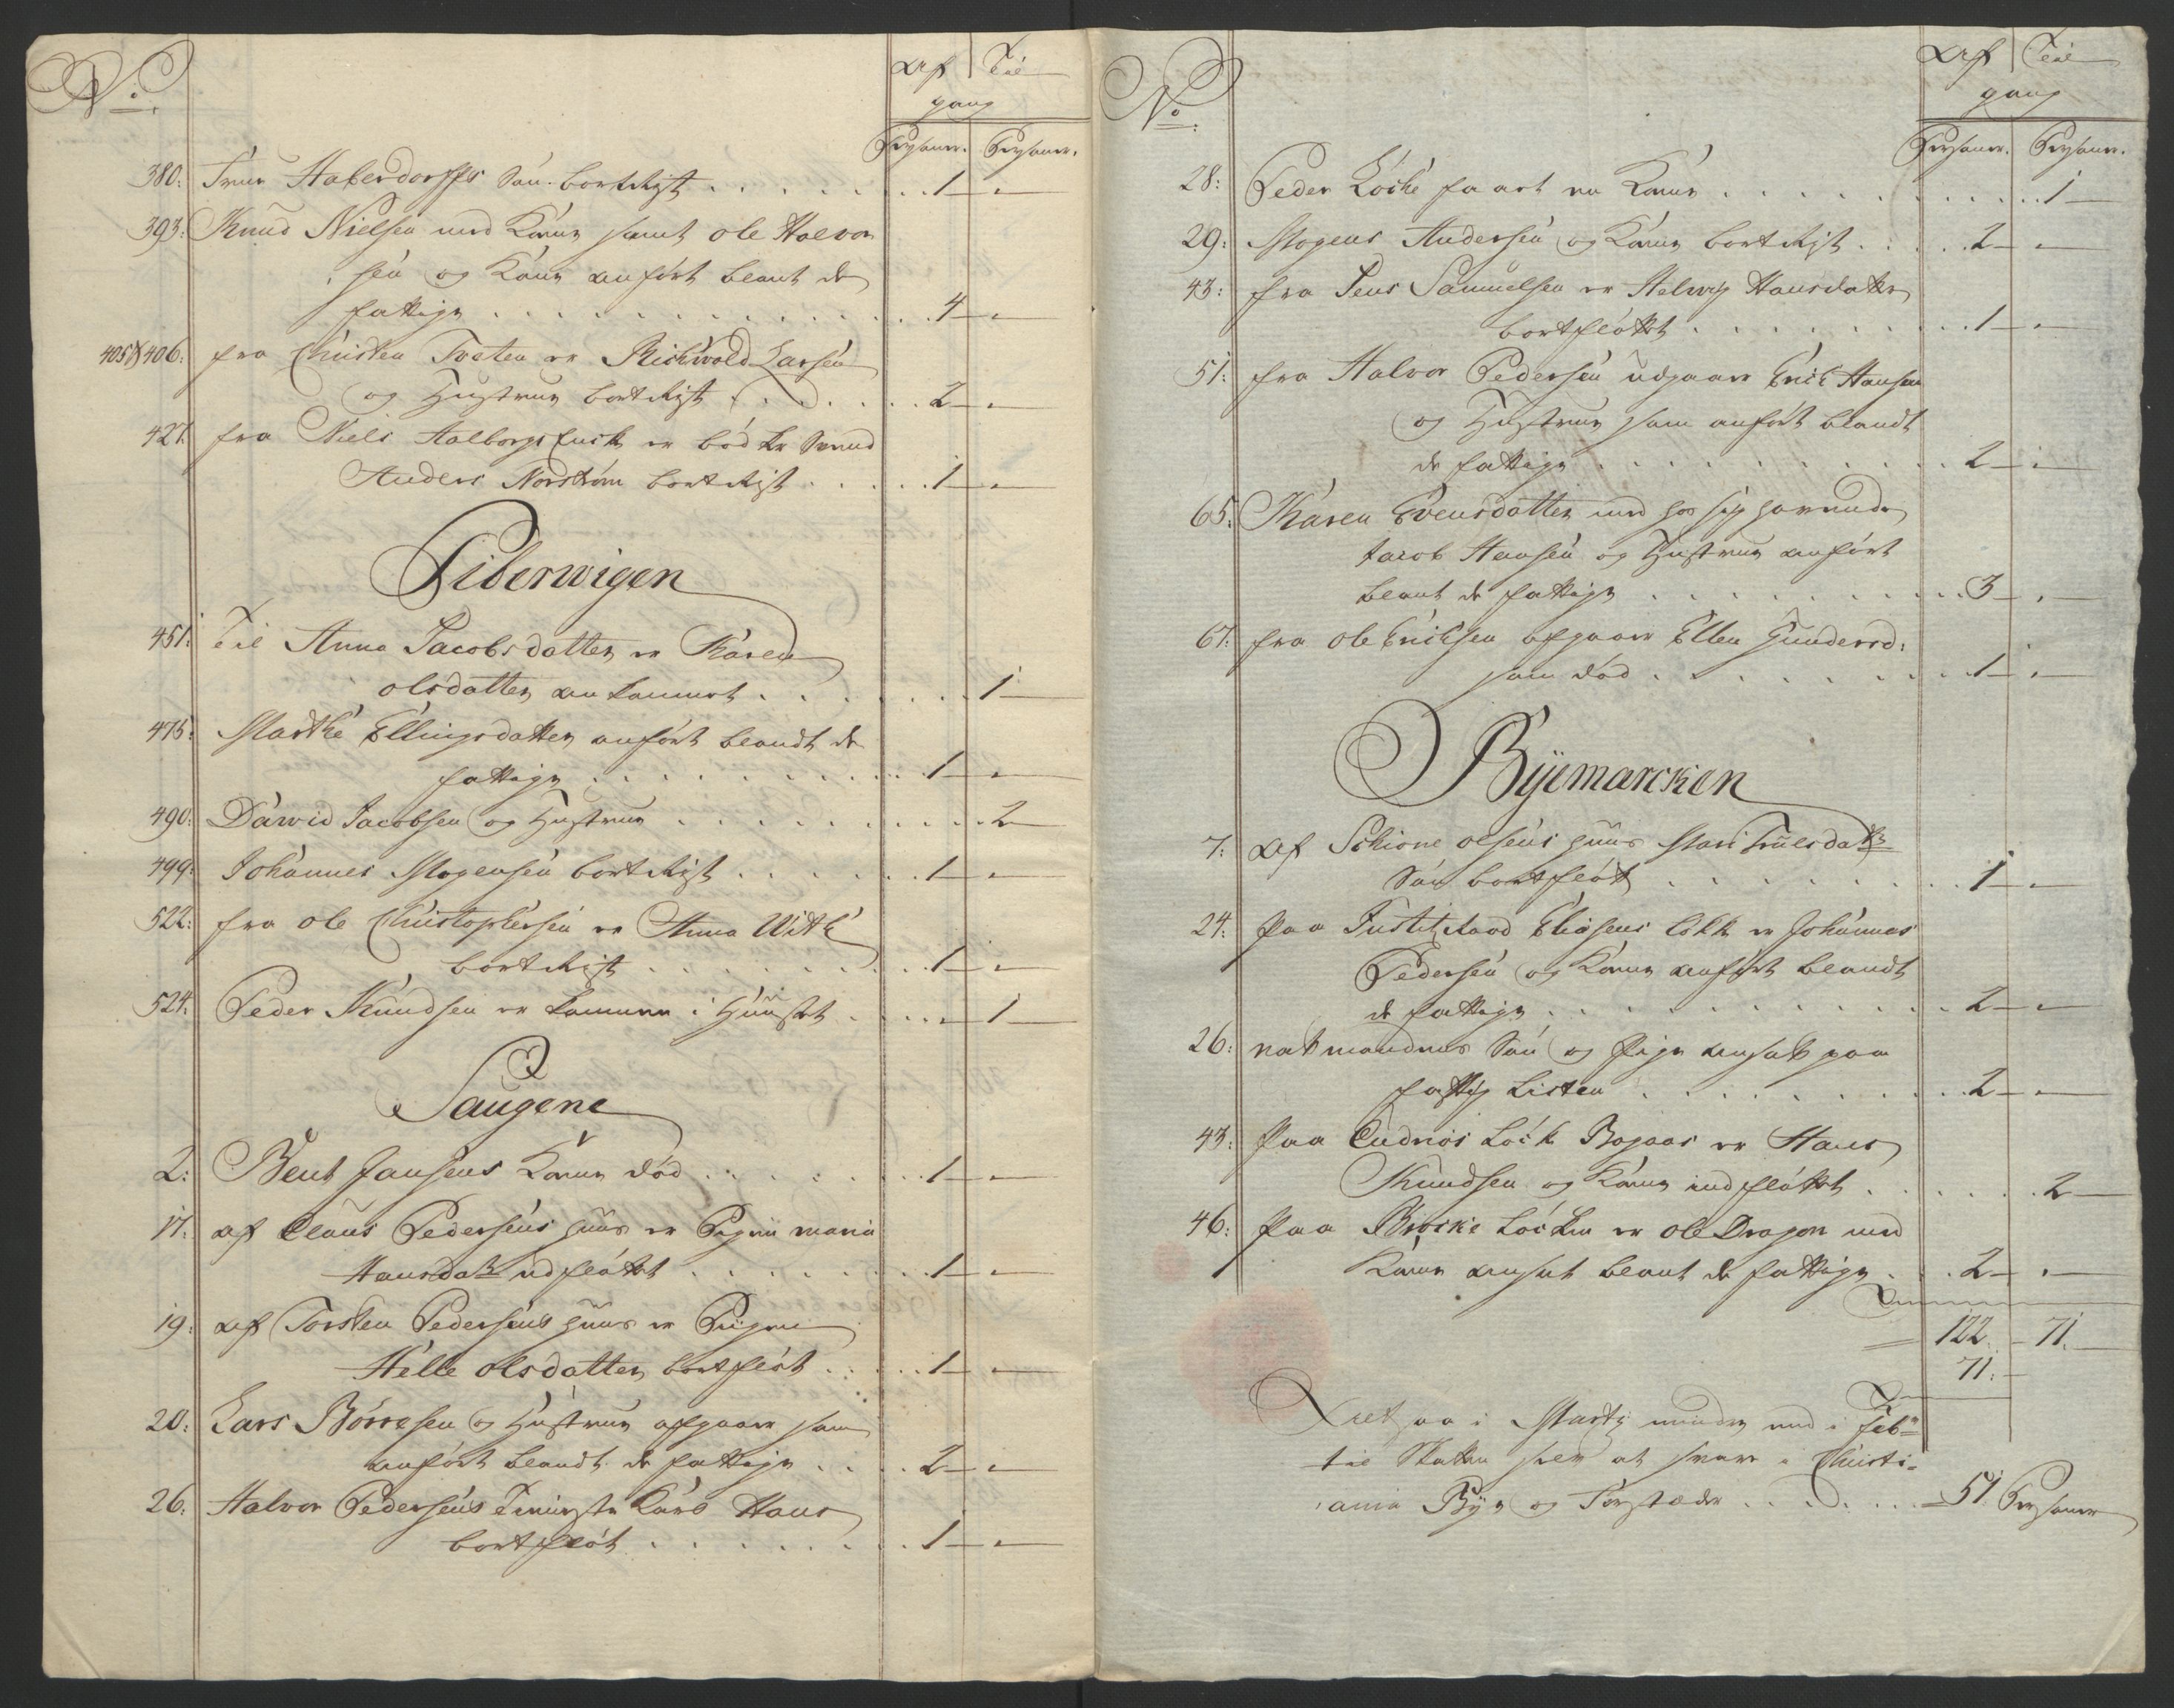 No.
Af | Til
gang
Persooner. Persooner.
380: Frue Haberdorffs Søn bortreyst . . . . . . 1 -
393: Knud Nielsen med Kone samt ole Halvor
sen og Kone anført blant de
fattige . . . . . . 4 -
405 & 406: fra Christen Tveten er Richvold Larsen
og Hustrue bortreyst . . . . . . 2 -
427. fra Niels Aalborgs Enke er Bødker Svend
Anders Nordstrøm bortreyst . . . . . . 1 -
Piberwigen
451: Til Anna Jacobsdatter er Karen
olsdatter ankommet . . . . . . 1
475: Marthe Ellingsdatter anført blandt de
fattige . . . . . . 1 -
490: Dawid Jacobsen og Hustrue . . . . . . 2
499: Johannes Mogensen bortreyst . . . . . . 1 -
522: fra ole Christophersen er Anna Witte
bortreyst . . . . . . 1 -
524: Peder Knudsen er kommen i Huuset . . . . 1
Saugene
2: Bent Jansens Kone død . . . . . . 1 -
17. af Claus Pedersens huus er Pigen maria
Hansdatr udfløttet . . . . . . 1 -
19: af Torsten Pedersens huus er Piigen
Helle olsdatter bortfløt . . . . . . 1 -
20: Lars Børresen og Hustrue afgaaer som
anført blandt de fattige . . . . 2 -
26: Halvor Pedersens Tieneste Karl Hans
bortfløt . . . . . . 1 -
No.
Af | Til
gang
Persooner. Persooner.
28: Peder Löche faaet en Kone . . . . . . 1
29: Mogens Andersen og Kone bortreyst . . . . 2 -
43: fra Jens Samuelsen er Helwig Hansdatter
bortfløttet . . . . . . 1 -
51: fra Halvor Pedersen udgaaer Erich Hansen
og Hustrue som anført blandt
de fattige . . . . . . 2 -
65: Karen Evensdatter med hos sig havende
Jacob Hansen og Hustrue anført
blant de fattige . . . . . . 3 -
67. fra ole Erichsen afgaaer Ellen Gundersd:
som død . . . . . . 1 -
Byemarcken
7: Af Schione olsens huus Mari Truelsdatr
Søn bortfløt . . . . . . 1 -
24: Paa Justitzraad Eliesens Løkke er Johannes
Pedersen og Kone anført blandt
de fattige . . . . . . 2 -
26: natmandens Søn og Pige ansat paa
fattig Listen . . . . . . 2 -
43: Paa Løck Bogaas er Hans
Knudsen og Kone indfløttet . . . . . . 2
46: Paa Brøske Løcken er ole Dragon med
Kone ansat blant de fattige . . . 2 -
122. - 71.
71. -
Altsaa i Marty minder end i Febr
til Skatten hver at svare i Christi-
ania Bye og Forstæder . . . . . = 51 Persooner